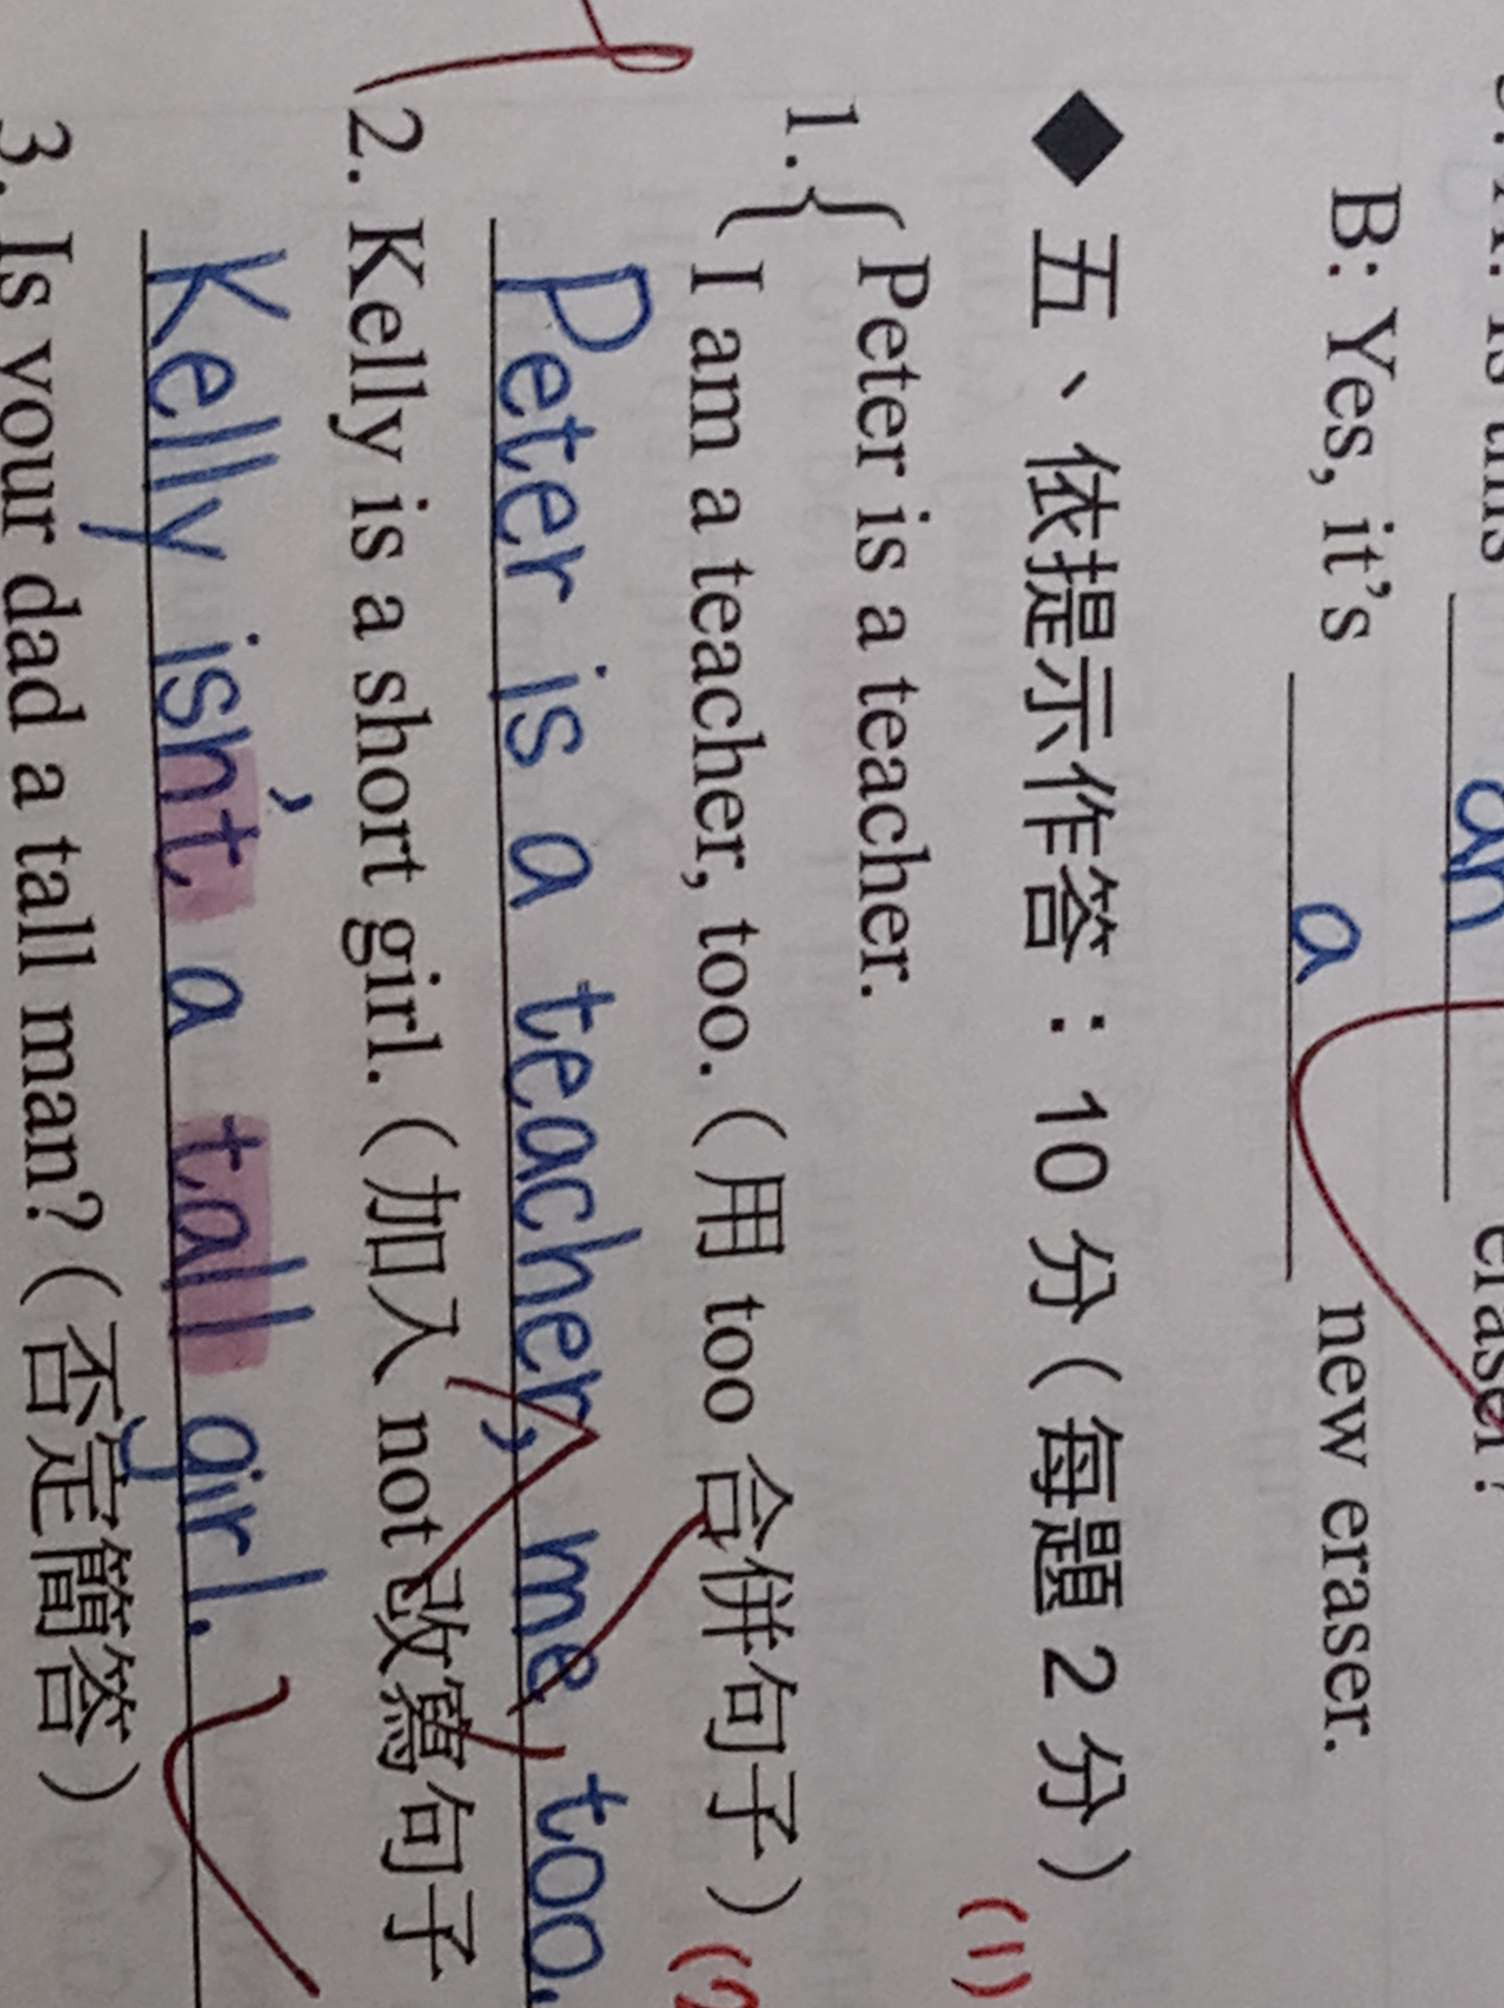 B: Yes, it's a new eraser.
◆ 五、依提示作答：10分（每題2分）
(1)
1. { Peter is a teacher.
I am a teacher, too.（用 too 合併句子）
Peter is a teacher, me too.
2. Kelly is a short girl.（加入 not 改寫句子
Kelly isn't a tall girl.
3. Is your dad a tall man?（否定簡答）